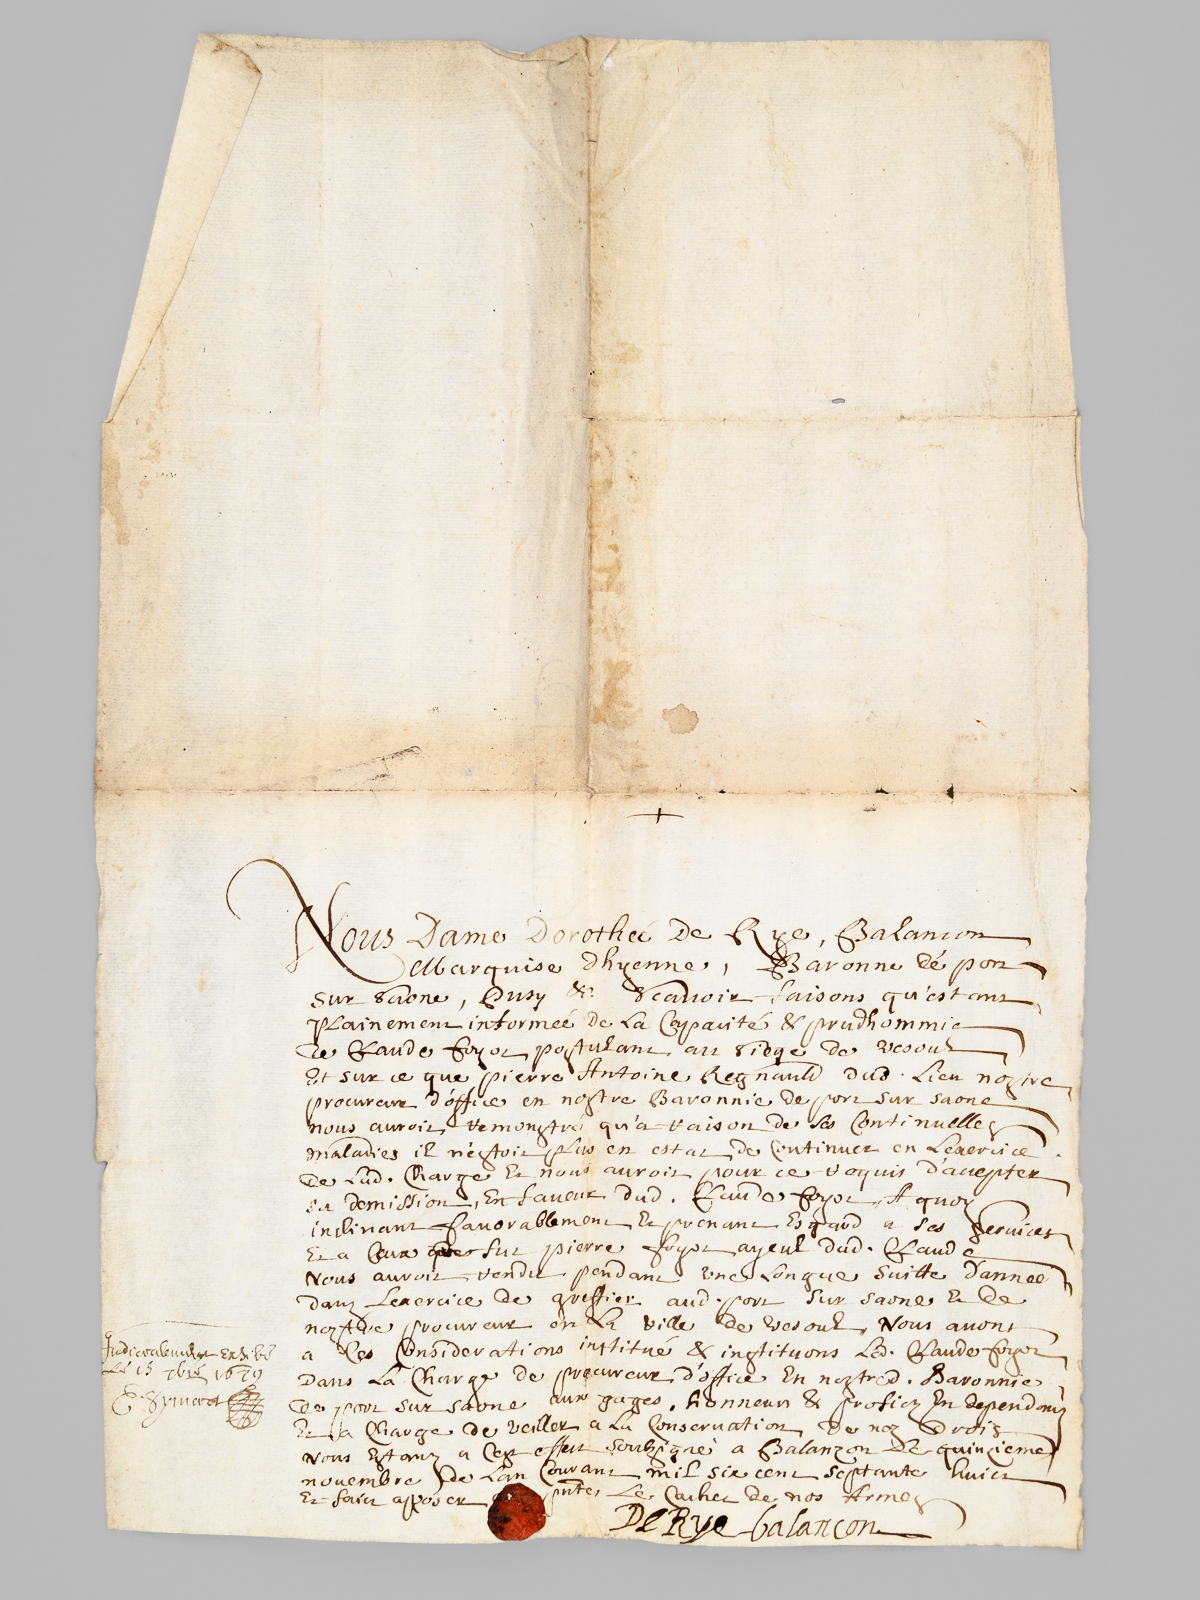 Nous Dame Dorotheé de Rye, Balancon
Marquise dhyenne, Baronne dé port
sur saone, Pusy &c. scauoir faisons qu'estant
plainement informeé de la Capacité & prudhommie
de Claude foyot postulant au siege de vesoul
Et sur ce que pierre Antoine Regnauld dud. Lieu nostre
procureur d'office en nostre Baronnie de port sur saone
nous auroit remonstré qu'a raison de ses Continuelles
maladies il n'estoit plus en estat de Continuer en Lexercice
de Lad. Charge Et nous auroit pour ce requis d'accepter
sa demission, En faueur dud. Claude foyot, A quoy
inclinant fauorablement Et prenant Esgard a ses seruices
Et a Ceux que fut pierre foyot ayeul dud. Claude
Nous auroit rendu pendant vne Longue suitte d'anneé
dans Lexercice de greffier aud. port sur saone Et de
nostre procureur en La ville de vesoul, Nous auons
a Ces Considerations institué & instituons Led. Claude foyot
Dans La Charge de procureur d'office En nostred. Baronnie
de port sur saone aux gages, honneurs & profictz En dependans
Et a Charge de veiller a La Conservation de noz Droitz
Nous Estans a Cest effect soubsigné a Balançon Le quinzieme
novembre de Lan Courant mil six cent septante huict
Et faict apposer pntes Le Cachet de nos Armes
De Rye balancon
Le 15 7bre 1679